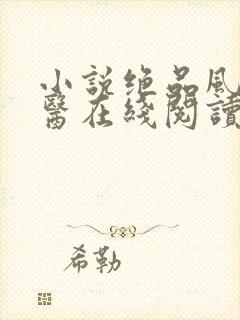 小说绝品风
醫在綫閱讀
希勒